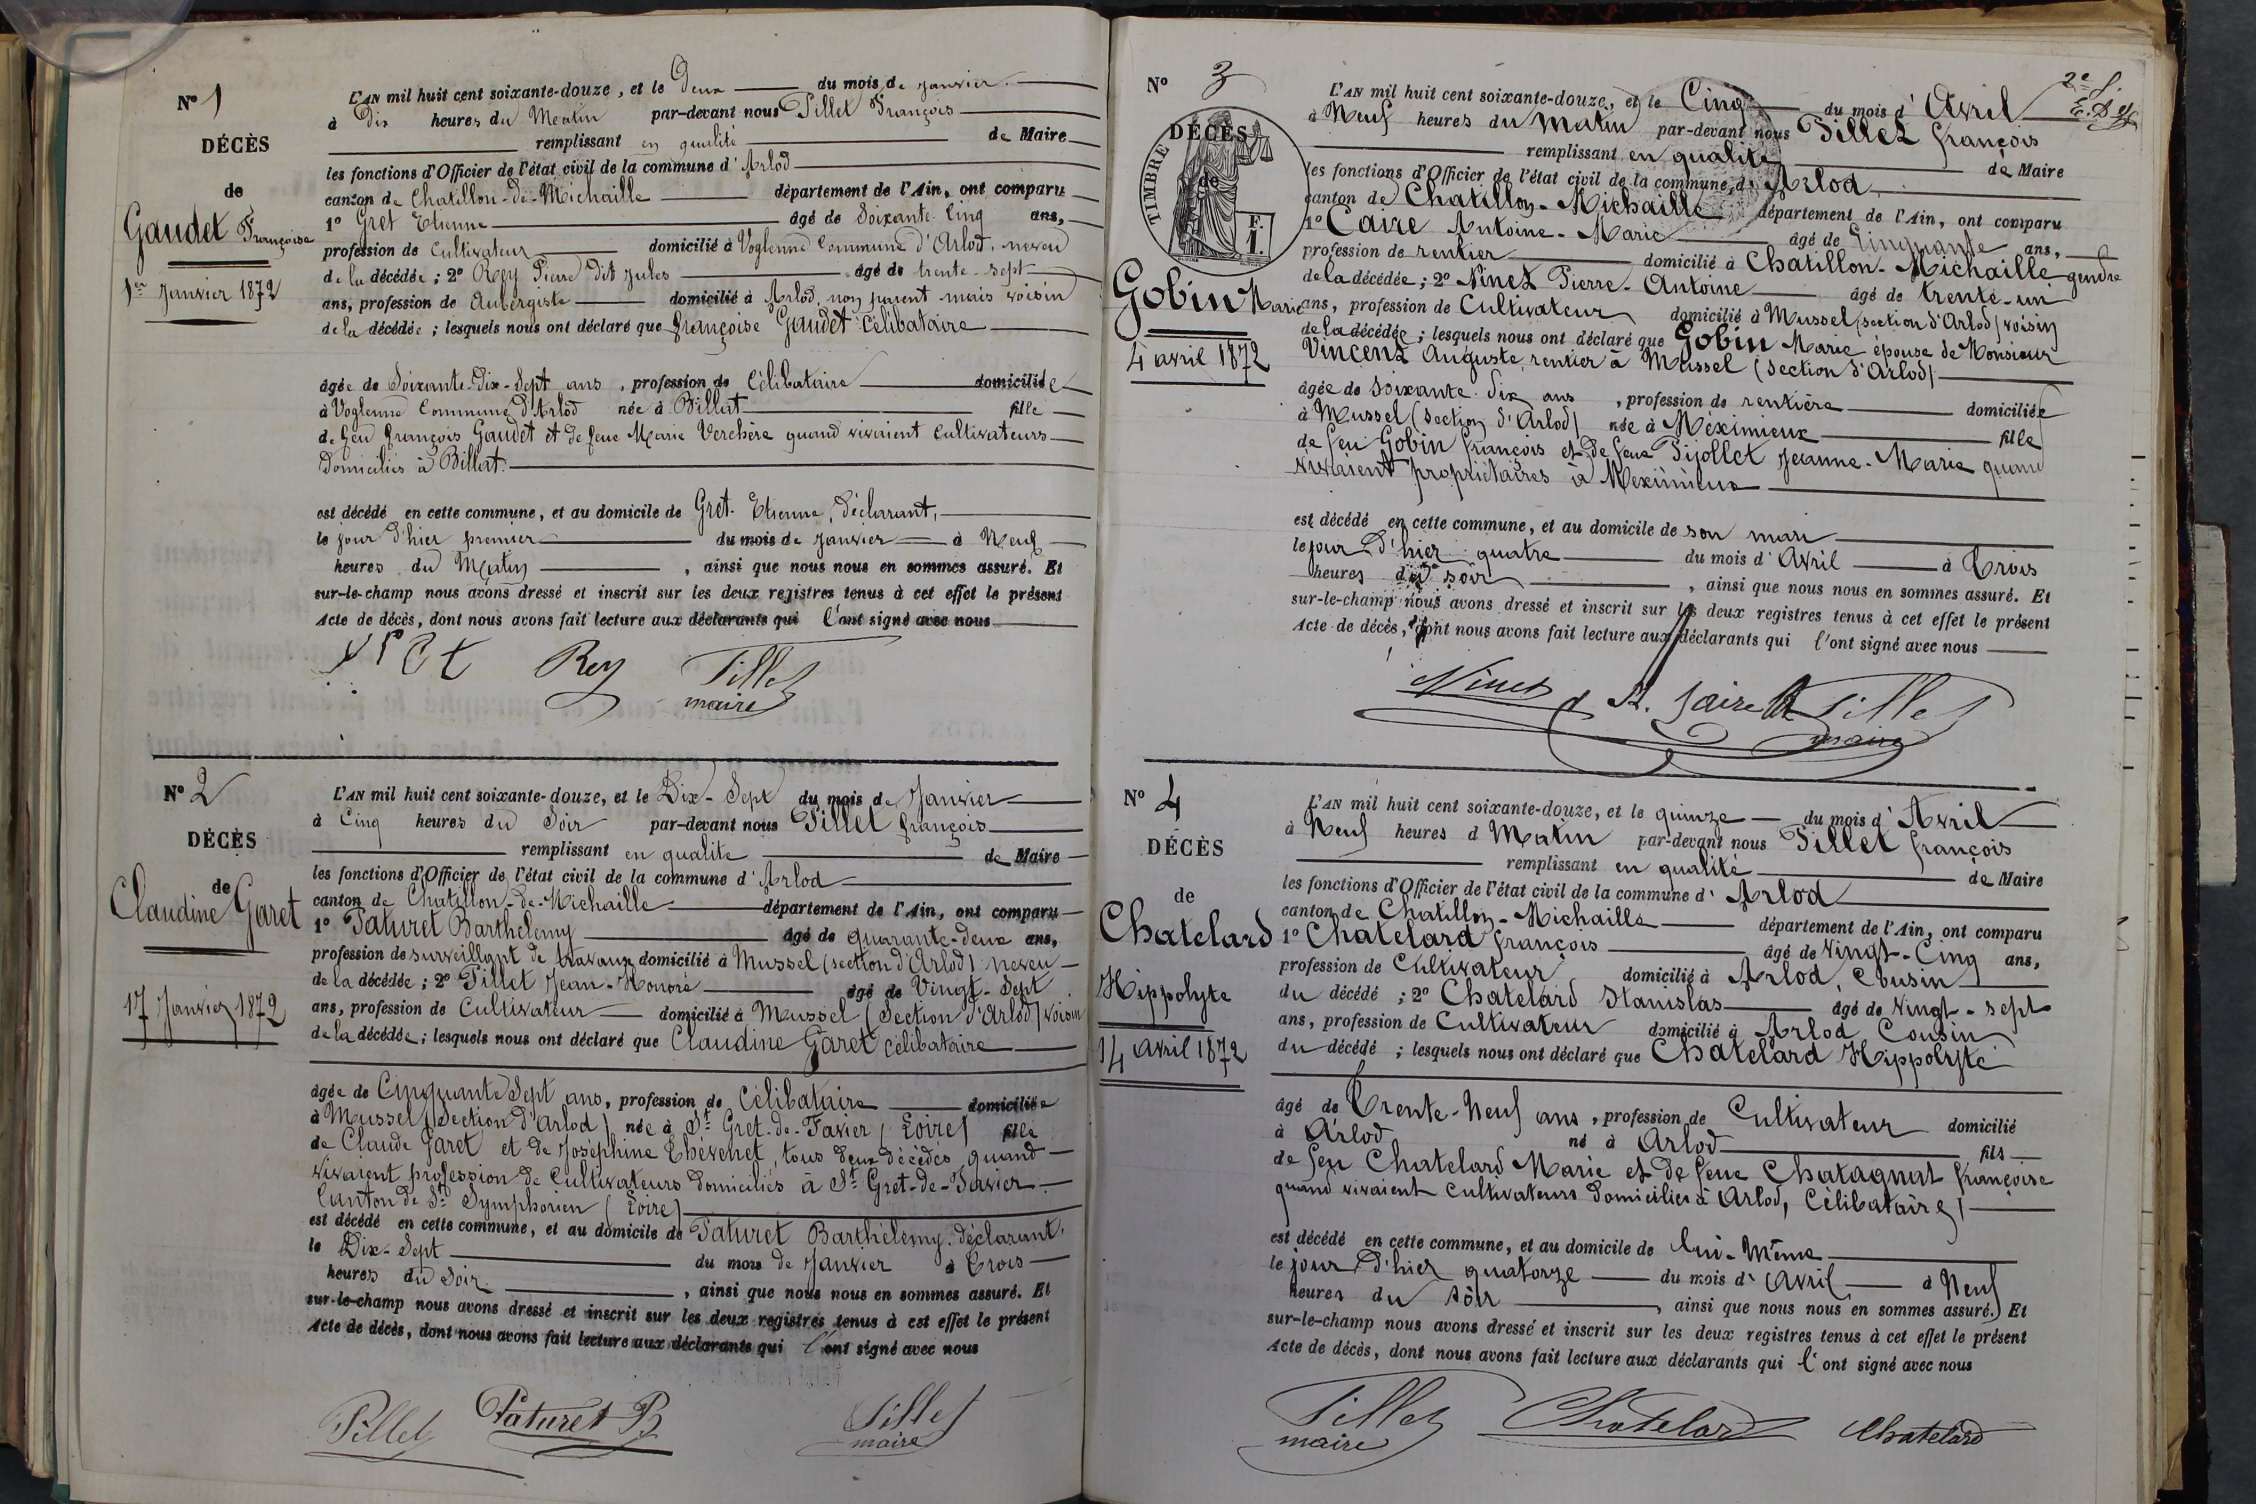 N° 1
DÉCÈS
de
Gaudet Françoise
1er Janvier 1872
L'AN mil huit cent soixante-douze, et le Deux du mois de Janvier
à Dix heures du Matin par-devant nous Pillet François
remplissant en qualité de Maire
les fonctions d'Officier de l'état civil de la commune d'Arlod
canton de Chatillon-de-Michaille département de l'Ain, ont comparu
1° Gret Etienne âgé de Soixante-Cinq ans,
profession de Cultivateur domicilié à Voglenne Commune d'Arlod, neveu
de la décédée ; 2° Rey Pierre dit Jules âgé de trente-sept
ans, profession de Aubergiste domicilié à Arlod, non parent mais voisin
de la décédée ; lesquels nous ont déclaré que Françoise Gaudet Célibataire
âgée de Soixante-Dix-Sept ans, profession de Célibataire domiciliée
à Voglenne Commune d'Arlod née à Billiat fille
de feu François Gaudet et de feue Marie Verchère quand vivaient Cultivateurs
Domiciliés à Billiat.
est décédé en cette commune, et au domicile de Gret Etienne, Déclarant,
le jour d'hier premier du mois de Janvier à Neuf
heures du Matin, ainsi que nous nous en sommes assuré. Et
sur-le-champ nous avons dressé et inscrit sur les deux registres tenus à cet effet le présent
Acte de décès, dont nous avons fait lecture aux déclarants qui l'ont signé avec nous
gret Rey Pillet
maire
N° 2
DÉCÈS
de
Claudine Garet
17 Janvier 1872
L'AN mil huit cent soixante-douze, et le Dix-Sept du mois de Janvier
à Cinq heures du Soir par-devant nous Pillet François
remplissant en qualité de Maire
les fonctions d'Officier de l'état civil de la commune d'Arlod
canton de Chatillon-de-Michaille département de l'Ain, ont comparu
1° Paturet Barthélemy âgé de quarante-deux ans,
profession de surveillant de travaux domicilié à Mussel (section d'Arlod) neveu
de la décédée ; 2° Pillet Jean-Honoré âgé de Vingt-Sept
ans, profession de Cultivateur domicilié à Mussel (Section d'Arlod) voisin
de la décédée ; lesquels nous ont déclaré que Claudine Garet célibataire
âgée de Cinquante Sept ans, profession de Célibataire domiciliée
à Mussel (Section d'Arlod) née à St Gret-de-Favier (Loire) fille
de Claude Garet et de Joséphine Thévenet, tous deux décédés quand
vivaient profession de Cultivateurs domiciliés à St Gret-de-Favier
Canton de St Symphorien (Loire)
est décédé en cette commune, et au domicile de Paturet Barthélemy, déclarant,
le Dix-Sept du mois de Janvier à Trois
heures du Soir, ainsi que nous nous en sommes assuré. Et
sur-le-champ nous avons dressé et inscrit sur les deux registres tenus à cet effet le présent
Acte de décès, dont nous avons fait lecture aux déclarants qui l'ont signé avec nous
Pillet Paturet B Pillet
maire
2e f.
N° 3
TIMBRE
F. 1.
DÉCÈS
de
Gobin Marie
4 avril 1872
L'AN mil huit cent soixante-douze, et le Cinq du mois d'Avril
à Neuf heures du Matin par-devant nous Pillet François
remplissant en qualité de Maire
les fonctions d'Officier de l'état civil de la commune d'Arlod
canton de Chatillon-Michaille département de l'Ain, ont comparu
1° Caire Antoine-Marie âgé de Cinquante ans,
profession de rentier domicilié à Chatillon-Michaille gendre
de la décédée ; 2° Ninet Pierre-Antoine âgé de trente-un
ans, profession de Cultivateur domicilié à Mussel (section d'Arlod) voisin
de la décédée ; lesquels nous ont déclaré que Gobin Marie épouse de Monsieur
Vincent Auguste, rentier à Mussel (Section d'Arlod)
âgée de Soixante Dix ans, profession de rentière domiciliée
à Mussel (Section d'Arlod) née à Méximieux fille
de feu Gobin François et de feue Pijollet Jeanne-Marie quand
vivaient propriétaires à Meximieux
est décédé en cette commune, et au domicile de son mari
le jour d'hier quatre du mois d'Avril à Trois
heures du soir, ainsi que nous nous en sommes assuré. Et
sur-le-champ nous avons dressé et inscrit sur les deux registres tenus à cet effet le présent
Acte de décès, dont nous avons fait lecture aux déclarants qui l'ont signé avec nous
Ninet Caire Pillet
maire
N° 4
DÉCÈS
de
Chatelard
Hippolyte
14 avril 1872
L'AN mil huit cent soixante-douze, et le quinze du mois d'Avril
à Neuf heures d Matin par-devant nous Pillet François
remplissant en qualité de Maire
les fonctions d'Officier de l'état civil de la commune d'Arlod
canton de Chatillon-Michaille département de l'Ain, ont comparu
1° Chatelard François âgé de Vingt-Cinq ans,
profession de Cultivateur domicilié à Arlod, Cousin
du décédé ; 2° Chatelard Stanislas âgé de vingt-sept
ans, profession de Cultivateur domicilié à Arlod Cousin
du décédé ; lesquels nous ont déclaré que Chatelard Hippolyte
âgé de Trente-Neuf ans, profession de Cultivateur domicilié
à Arlod né à Arlod fils
de feu Chatelard Marie et de feue Chatagnat Françoise
quand vivaient Cultivateurs domiciliés à Arlod, Célibataire)
est décédé en cette commune, et au domicile de Lui-Même
le jour d'hier quatorze du mois d'Avril à Neuf
heures du soir, ainsi que nous nous en sommes assuré. Et
sur-le-champ nous avons dressé et inscrit sur les deux registres tenus à cet effet le présent
Acte de décès, dont nous avons fait lecture aux déclarants qui l'ont signé avec nous
Pillet Chatelard Chatelard
maire